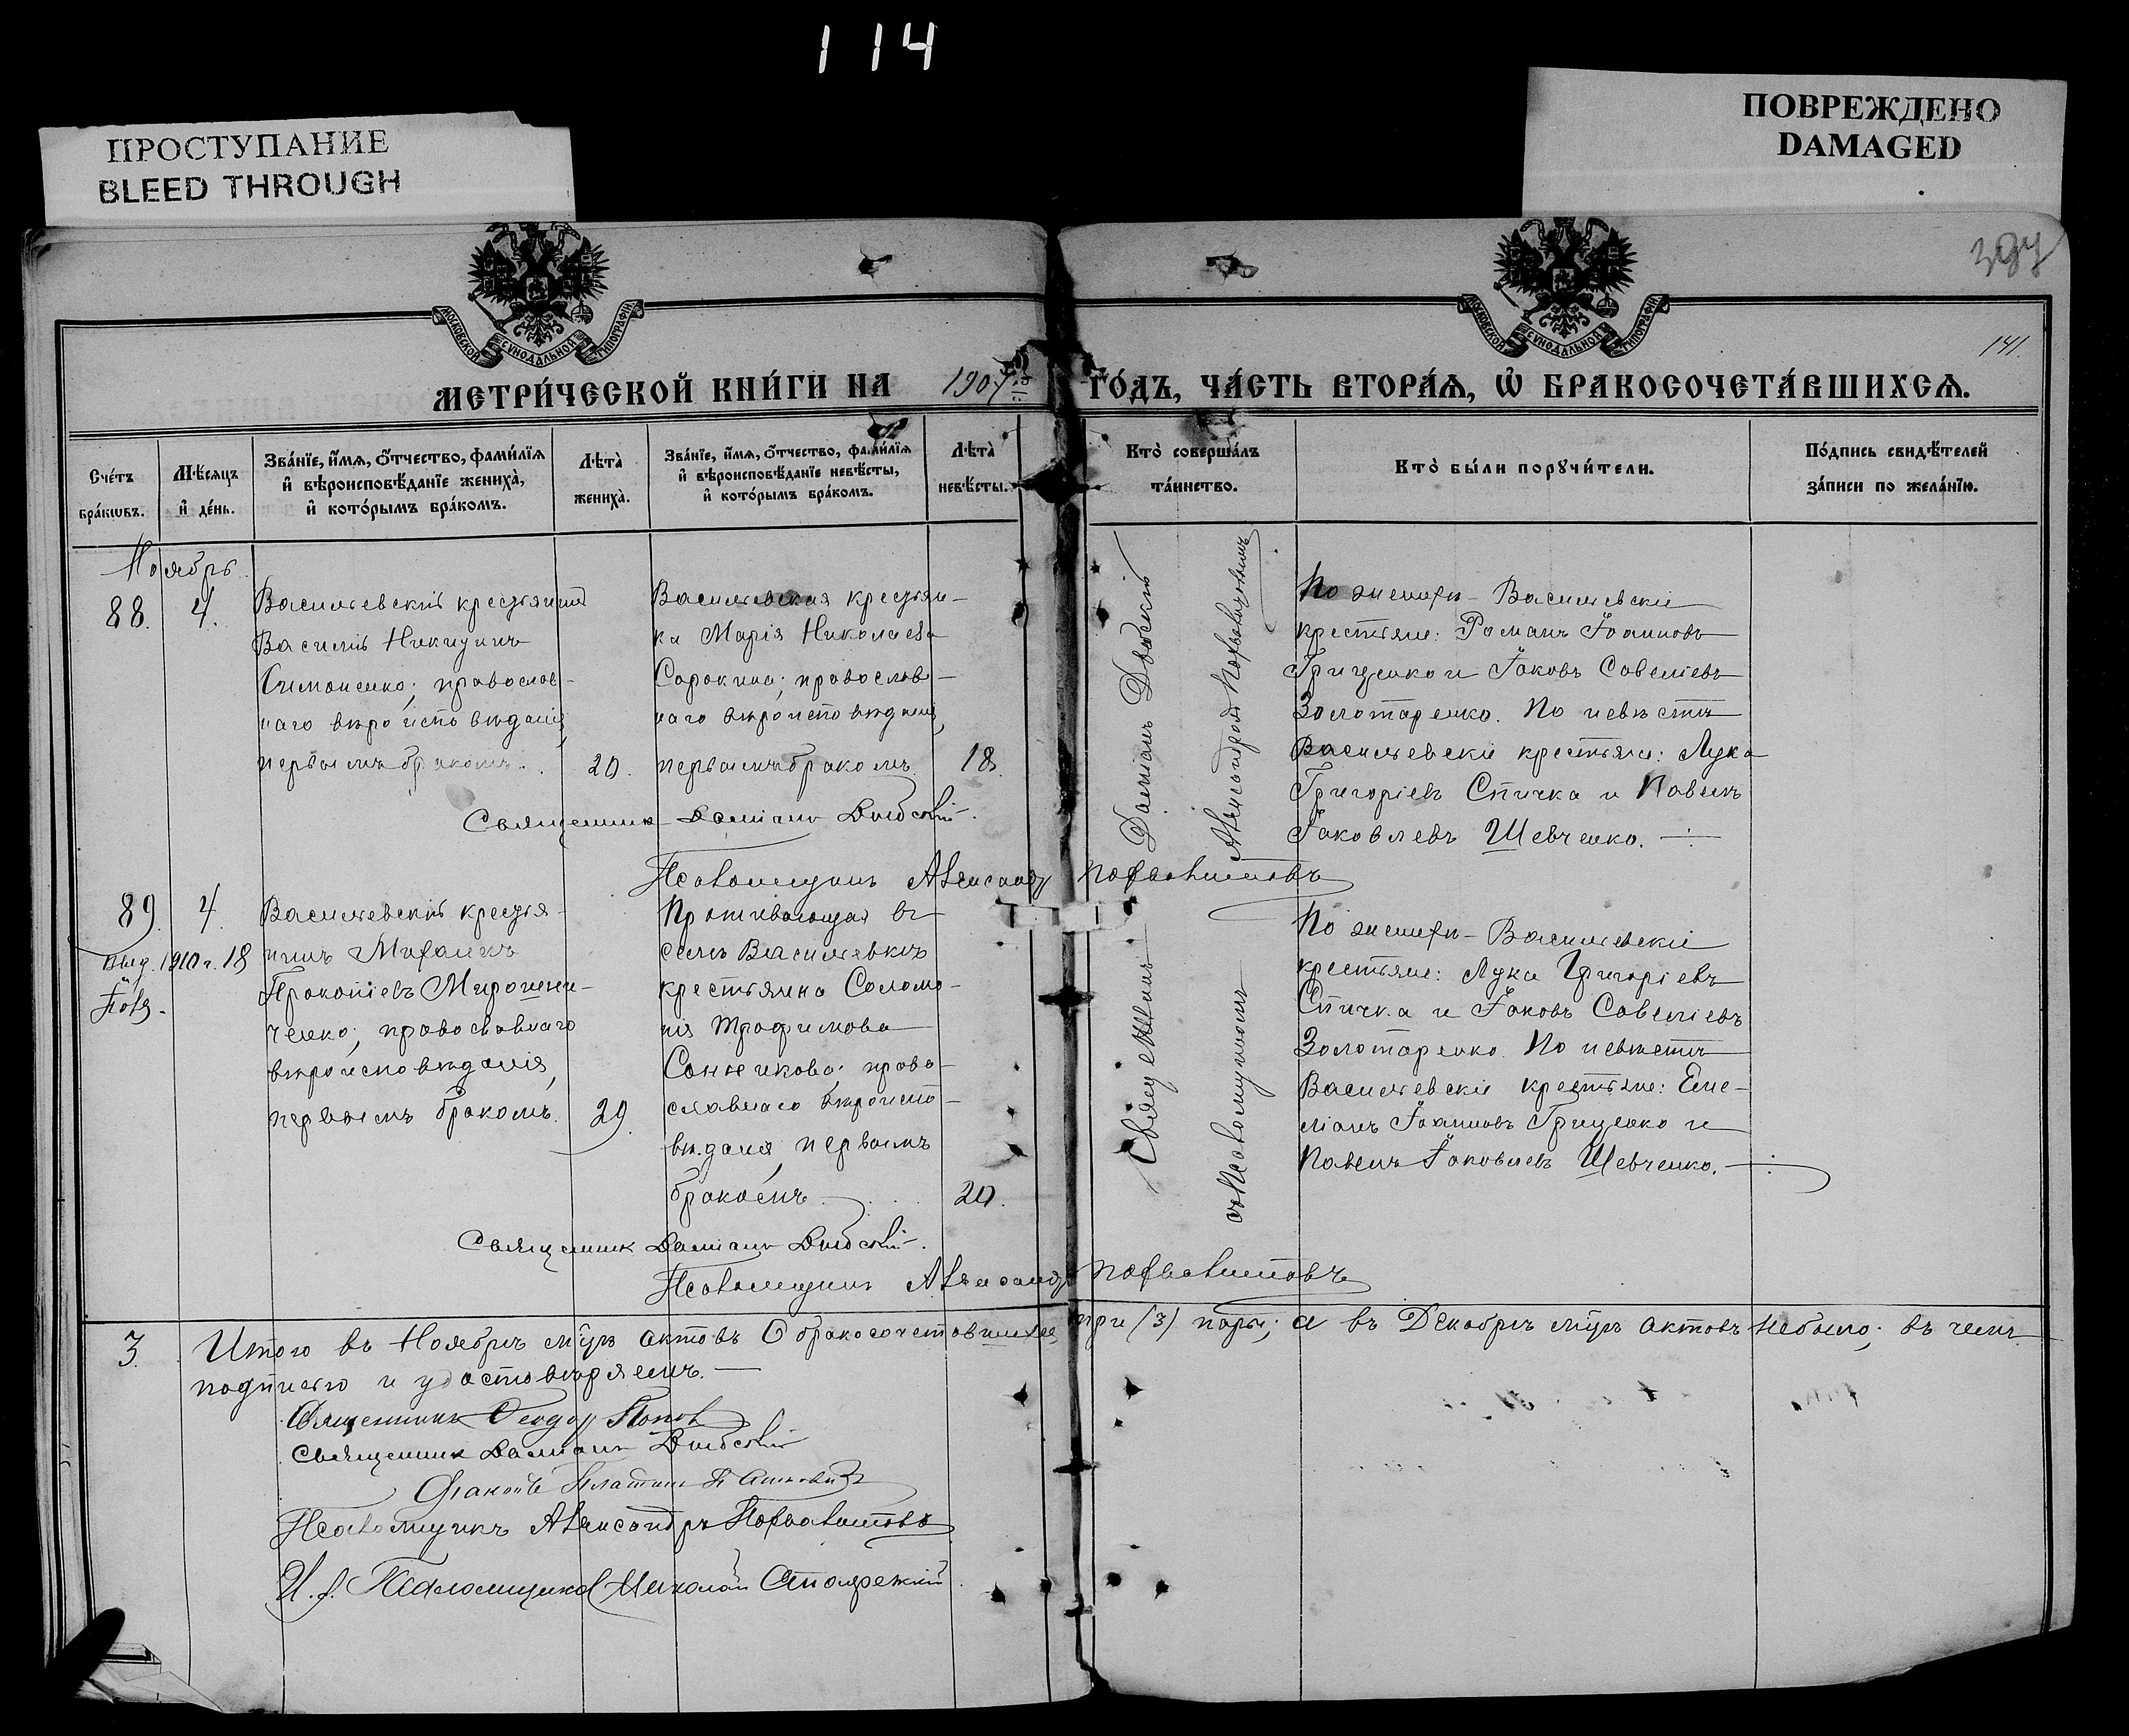 114
ПРОСТУПАНИЕ
BLEED THROUGH
ПОВРЕЖДЕНО
DAMAGED
МОСКОВСКОЙ СѴНОДАЛЬНОЙ ТИПОГРАФІИ
МОСКОВСКОЙ СѴНОДАЛЬНОЙ ТИПОГРАФІИ
141.
МЕТРИ́ЧЕСКОЙ КНИ́ГИ НА 1907 ГО́ДЪ, ЧА́СТЬ ВТОРА́Ѧ, Ѡ҆ БРАКОСОЧЕТА́ВШИХСѦ.
Сче́тъ
бра́кѡвъ.
Мѣ́сяцъ
и҆ де́нь.
Зва́нїе, и҆́мѧ, ѻ҆́тчество, фами́лїѧ
и҆ вѣроисповѣ́данїе жениха̀,
и҆ кото́рымъ бра́комъ.
Лѣта̀
жениха̀.
Зва́нїе, и҆́мѧ, ѻ҆́тчество, фами́лїѧ
и҆ вѣроисповѣ́данїе невѣ́сты,
и҆ кото́рымъ бра́комъ.
Лѣта̀
невѣ́сты.
Кто̀ соверша́лъ
та́инство.
Кто̀ бы́ли порꙋчи́тели.
По́дпись свидѣ́телей
за́писи по жела́нїю.
Ноябрь
88. 4.
Васильевскій крестьянинъ
Василій Никитинъ
Симоненко; православ-
наго вѣроисповѣданія,
первымъ бракомъ. 20.
Васильевская крестьян-
ка Марія Николаева
Сорокина; православ-
наго вѣроисповѣданія,
первымъ бракомъ 18.
По женихѣ - Васильевскіе
крестьяне: Романъ Іоанновъ
Гриценко и Іаковъ Савеліевъ
Золотаренко. По невѣстѣ
Васильевскіе крестьяне: Лука
Григоріевъ Спичка и Павелъ
Іаковлевъ Шевченко.
Священникъ Даміанъ
Псаломщикъ Александръ
89. 4.
Выд. 1910 г. 18
Васильевскій крестья-
нинъ Михаилъ
Прокопіевъ Мирошни-
ченко; православнаго
вѣроисповѣданія,
первымъ бракомъ. 29.
Проживающая въ
селѣ Васильевкѣ
крестьянка Соломо-
нія Трофимова
Санникова; право-
славнаго вѣроиспо-
вѣданія, первымъ
бракомъ 20.
Священникъ Даміанъ
съ Псаломщикомъ Александромъ
По женихѣ - Васильевскіе
крестьяне: Лука Григоріевъ
Спичка и Іаковъ Савеліевъ
Золотаренко. По невѣстѣ
Васильевскіе крестьяне: Еме-
ліанъ Іоанновъ Гриценко и
Павелъ Іаковлевъ Шевченко.
Священникъ Даміанъ
Псаломщикъ Александръ
3. Итого въ Ноябрѣ м̃цѣ актовъ о бракосочетавшихся три (3) пары; а въ Декабрѣ м̃цѣ актовъ небыло; въ чемъ
подписью и удостовѣряемъ.
Священникъ Ѳеодоръ Поповъ
Священникъ Даміанъ
Діаконъ Платонъ
Псаломщикъ Александръ
И. д. Псаломщика Николай